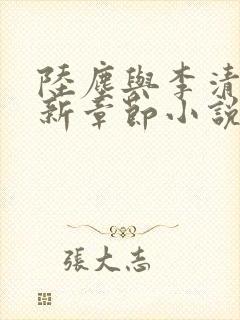 陸塵與李清
新章節小說
張大志